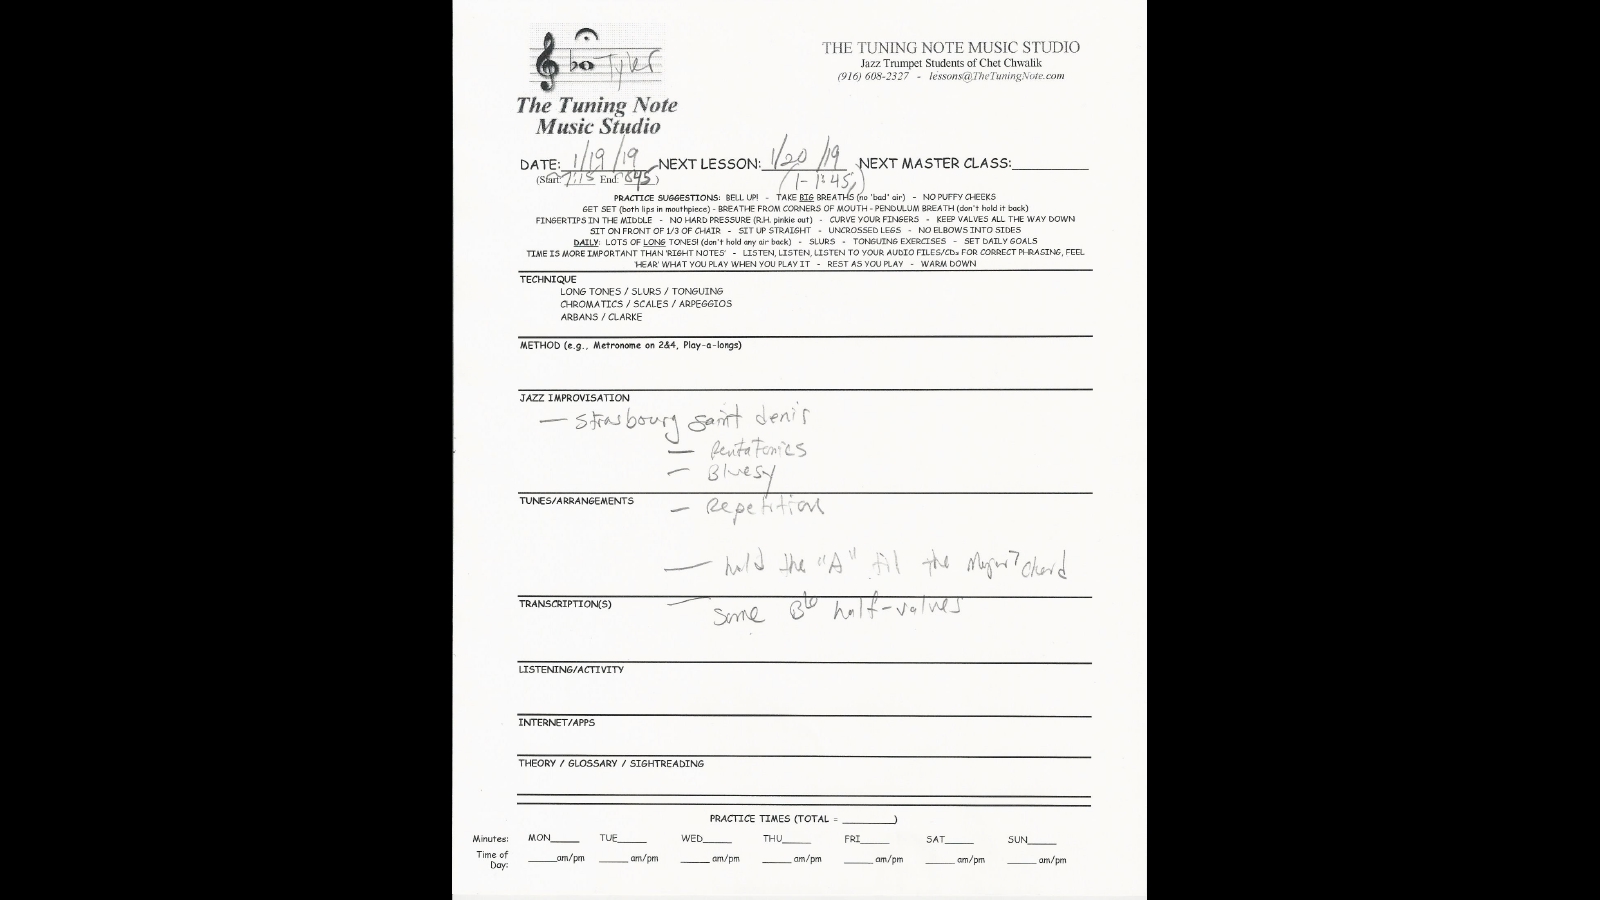 bo Tyler
The Tuning Note
Music Studio
THE TUNING NOTE MUSIC STUDIO
Jazz Trumpet Students of Chet Chwalik
(916) 608-2327 - lessons@TheTuningNote.com
DATE: 1/19/19 NEXT LESSON: 1/20/19 NEXT MASTER CLASS:__________
(Start: 7:15 End: 8:45) (1-1:45)
PRACTICE SUGGESTIONS: BELL UP! - TAKE BIG BREATHS (no 'bad' air) - NO PUFFY CHEEKS
GET SET (both lips in mouthpiece) - BREATHE FROM CORNERS OF MOUTH - PENDULUM BREATH (don't hold it back)
FINGERTIPS IN THE MIDDLE - NO HARD PRESSURE (R.H. pinkie out) - CURVE YOUR FINGERS - KEEP VALVES ALL THE WAY DOWN
SIT ON FRONT OF 1/3 OF CHAIR - SIT UP STRAIGHT - UNCROSSED LEGS - NO ELBOWS INTO SIDES
DAILY: LOTS OF LONG TONES! (don't hold any air back) - SLURS - TONGUING EXERCISES - SET DAILY GOALS
TIME IS MORE IMPORTANT THAN 'RIGHT NOTES' - LISTEN, LISTEN, LISTEN TO YOUR AUDIO FILES/CDs FOR CORRECT PHRASING, FEEL
'HEAR' WHAT YOU PLAY WHEN YOU PLAY IT - REST AS YOU PLAY - WARM DOWN
TECHNIQUE
LONG TONES / SLURS / TONGUING
CHROMATICS / SCALES / ARPEGGIOS
ARBANS / CLARKE
METHOD (e.g., Metronome on 2&4, Play-a-longs)
JAZZ IMPROVISATION
— Strasbourg saint denis
— Pentatonics
— Bluesy
TUNES/ARRANGEMENTS
— Repetition
— hold the "A" til the Major7 chord
TRANSCRIPTION(S)
— some Bb half-valves
LISTENING/ACTIVITY
INTERNET/APPS
THEORY / GLOSSARY / SIGHTREADING
PRACTICE TIMES (TOTAL = ________)
Minutes: MON_____ TUE_____ WED_____ THU_____ FRI_____ SAT_____ SUN_____
Time of _____am/pm _____ am/pm _____ am/pm _____ am/pm _____ am/pm _____ am/pm _____ am/pm
Day: